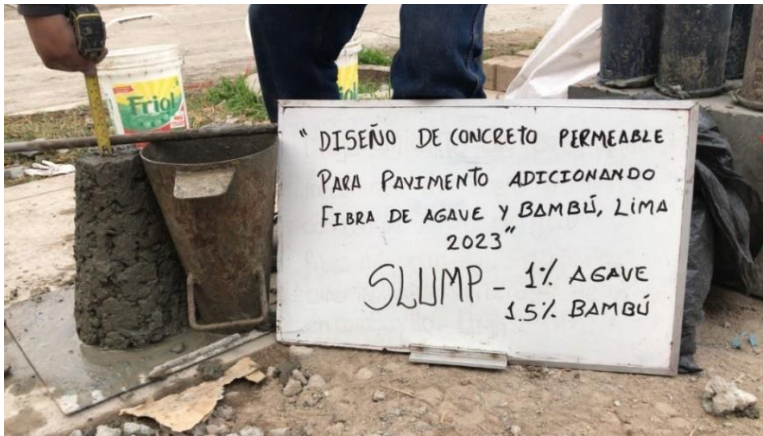 Friol
Friol
"DISEÑO DE CONCRETO PERMEABLE
PARA PAVIMENTO ADICIONANDO
FIBRA DE AGAVE Y BAMBÚ, LIMA
2023"
SLUMP - 1% AGAVE
1.5% BAMBÚ